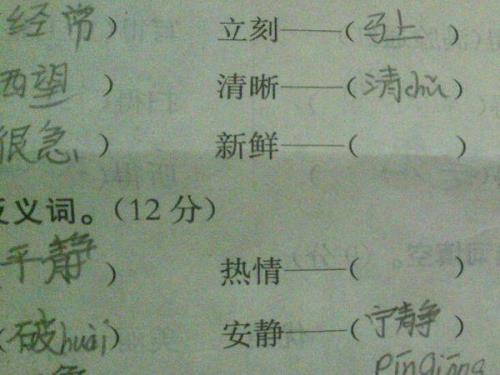 经常）　立刻——（马上）
西望　）　清晰——（清chu）
很急）　新鲜——（　　）
反义词。（12分）
平静　）　热情——（　　）
（破huai）　安静——（宁静　）